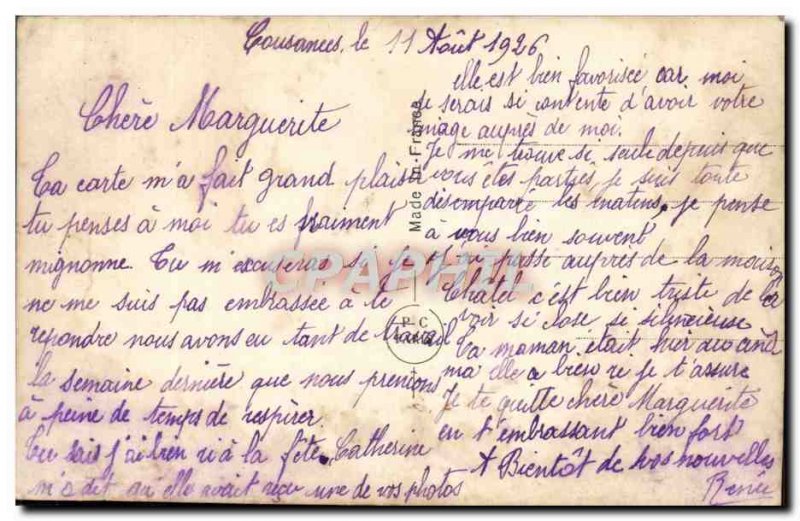 Cousances, le 11 Août 1926
Chère Marguerite
Ta carte m'a fait grand plaisir
tu penses à moi tu es fraiment
mignonne. Tu m'excuseras si je
ne me suis pas embrassée a te
repondre nous avons eu tant de travail
la semaine dernière que nous prenions
à peine de temps de respirer.
Tu sais j'ai bien ri à la fête. Catherine
m'a dit qu'elle avait reçu une de vos photos
elle est bien favorisée car moi
je serais si contente d'avoir votre
image auprès de moi.
Je me trouve si seule depuis que
vous êtes parties je suis toute
désemparée les matins, je pense
à vous bien souvent
passe auprès de la maison
Chatel c'est bien triste de la
voir si close si silencieuse
Ta maman était hier au ciné
ma elle a bien ri je t'assure
Je te quitte chère Marguerite
en t'embrassant bien fort
A Bientôt de vos nouvelles
Renée
Made in France
P C
PARIS
CPAPHIL